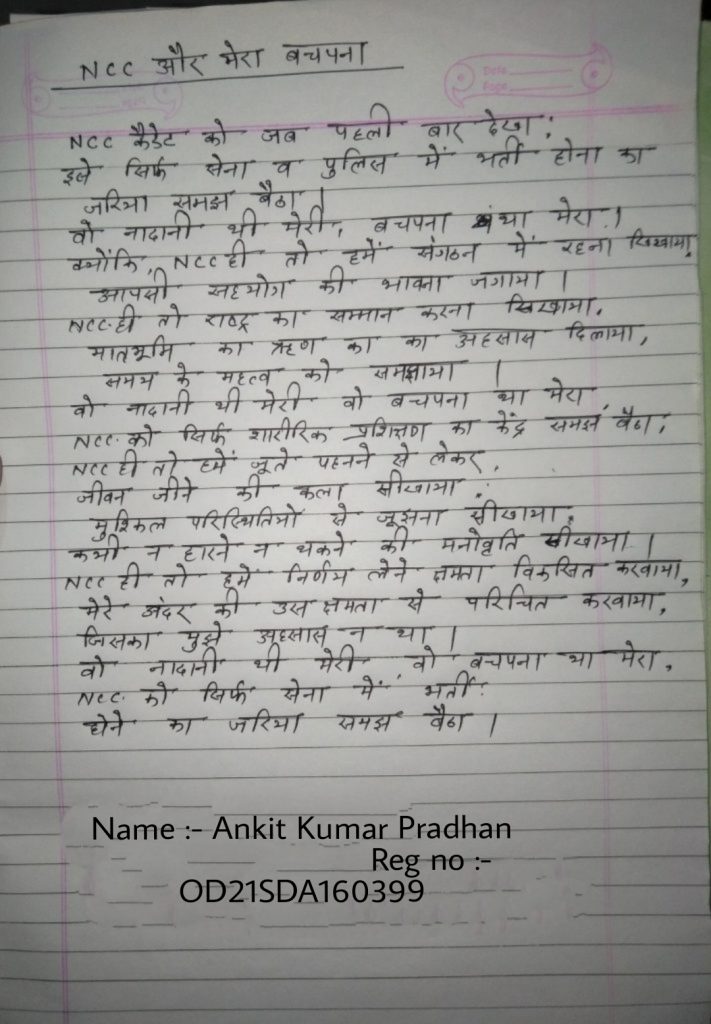 NCC और मेरा बचपना
NCC कैडेट को जब पहली बार देखा;
इसे सिर्फ सेना व पुलिस में भर्ती होना का
जरिया समझ बैठा |
वो नादानी थी मेरी, बचपना था मेरा |
क्योंकि, NCC ही तो हमें संगठन में रहना सिखाया,
आपसी सहयोग की भावना जगाया |
NCC ही तो राष्ट्र का सम्मान करना सिखाया,
मातृभूमि का ऋण का का अहसास दिलाया,
समय के महत्व को समझाया |
वो नादानी थी मेरी वो बचपना था मेरा,
NCC. को सिर्फ शारीरिक प्रशिक्षण का केंद्र समझ बैठा,
NCC ही तो हमें जूते पहनने से लेकर,
जीवन जीने की कला सीखाया;
मुश्किल परिस्थितियों से जूझना सीखाया,
कभी न हारने न थकने की मनोवृति सीखाया |
NCC ही तो हमें निर्णय लेने क्षमता विकसित करवाया,
मेरे अंदर की उस क्षमता से परिचित करवाया,
जिसका मुझे अहसास न था |
वो नादानी थी मेरी, वो बचपना था मेरा,
NCC. को सिर्फ सेना में भर्ती
होने का जरिया समझ बैठा |
Name :- Ankit Kumar Pradhan
Reg no :-
OD21SDA160399